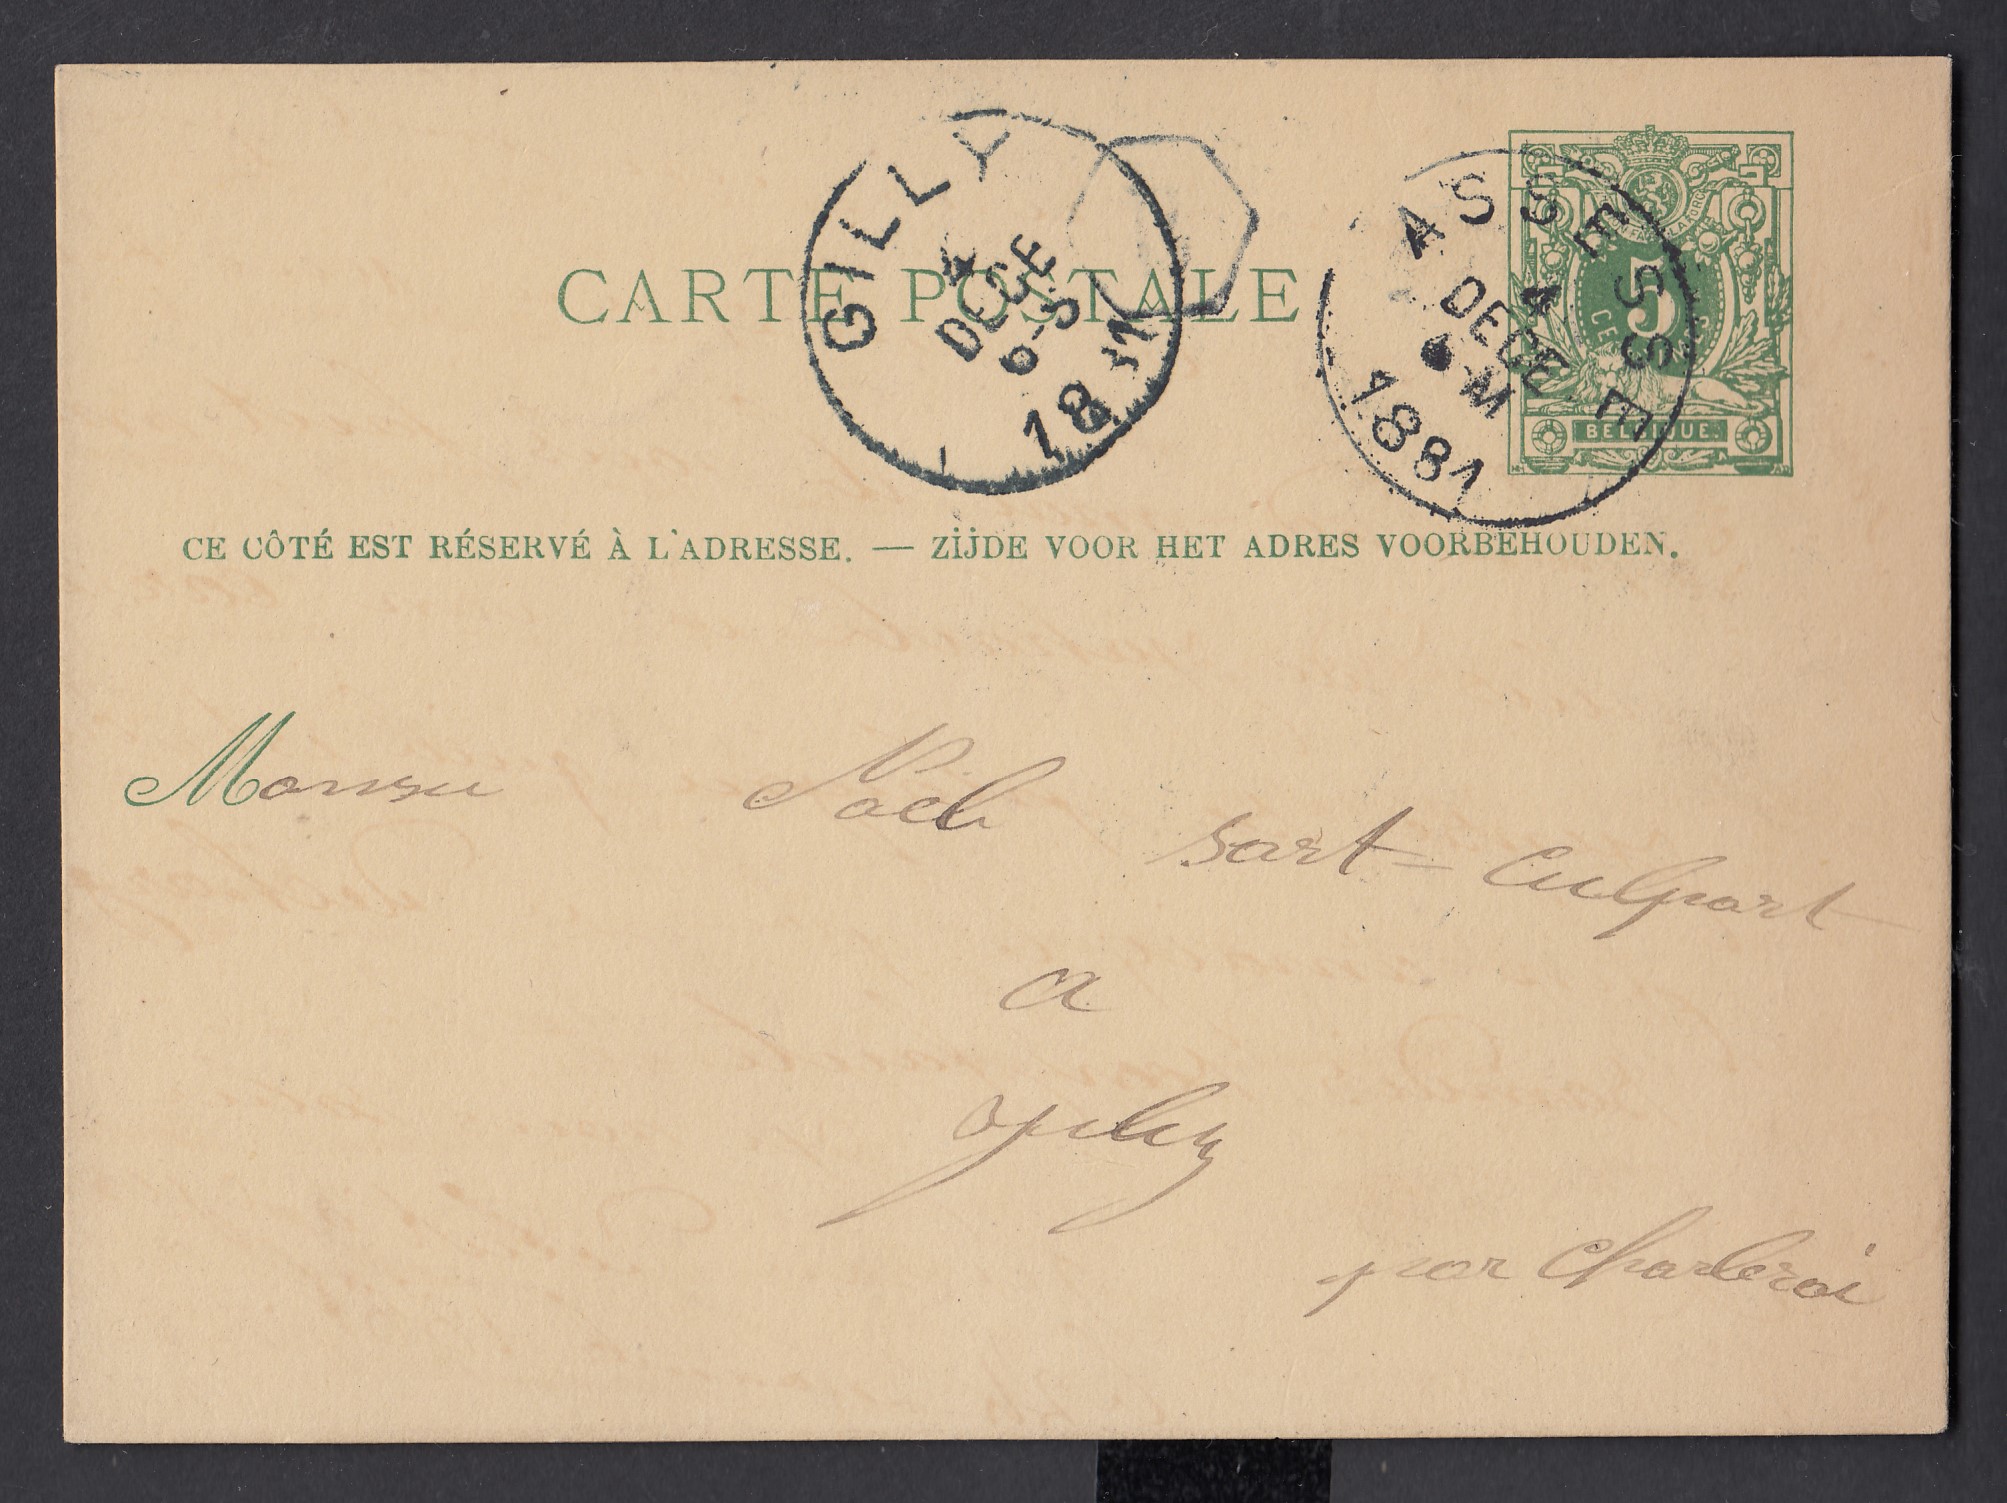 GILLY
4
DECE
6-S
1881
ASSESSE
4
DECE
6-M
1881
5
BELGIQUE.
CARTE POSTALE
CE CÔTÉ EST RÉSERVÉ À L'ADRESSE. — ZIJDE VOOR HET ADRES VOORBEHOUDEN.
Sart-Culpart
a
par Charleroi